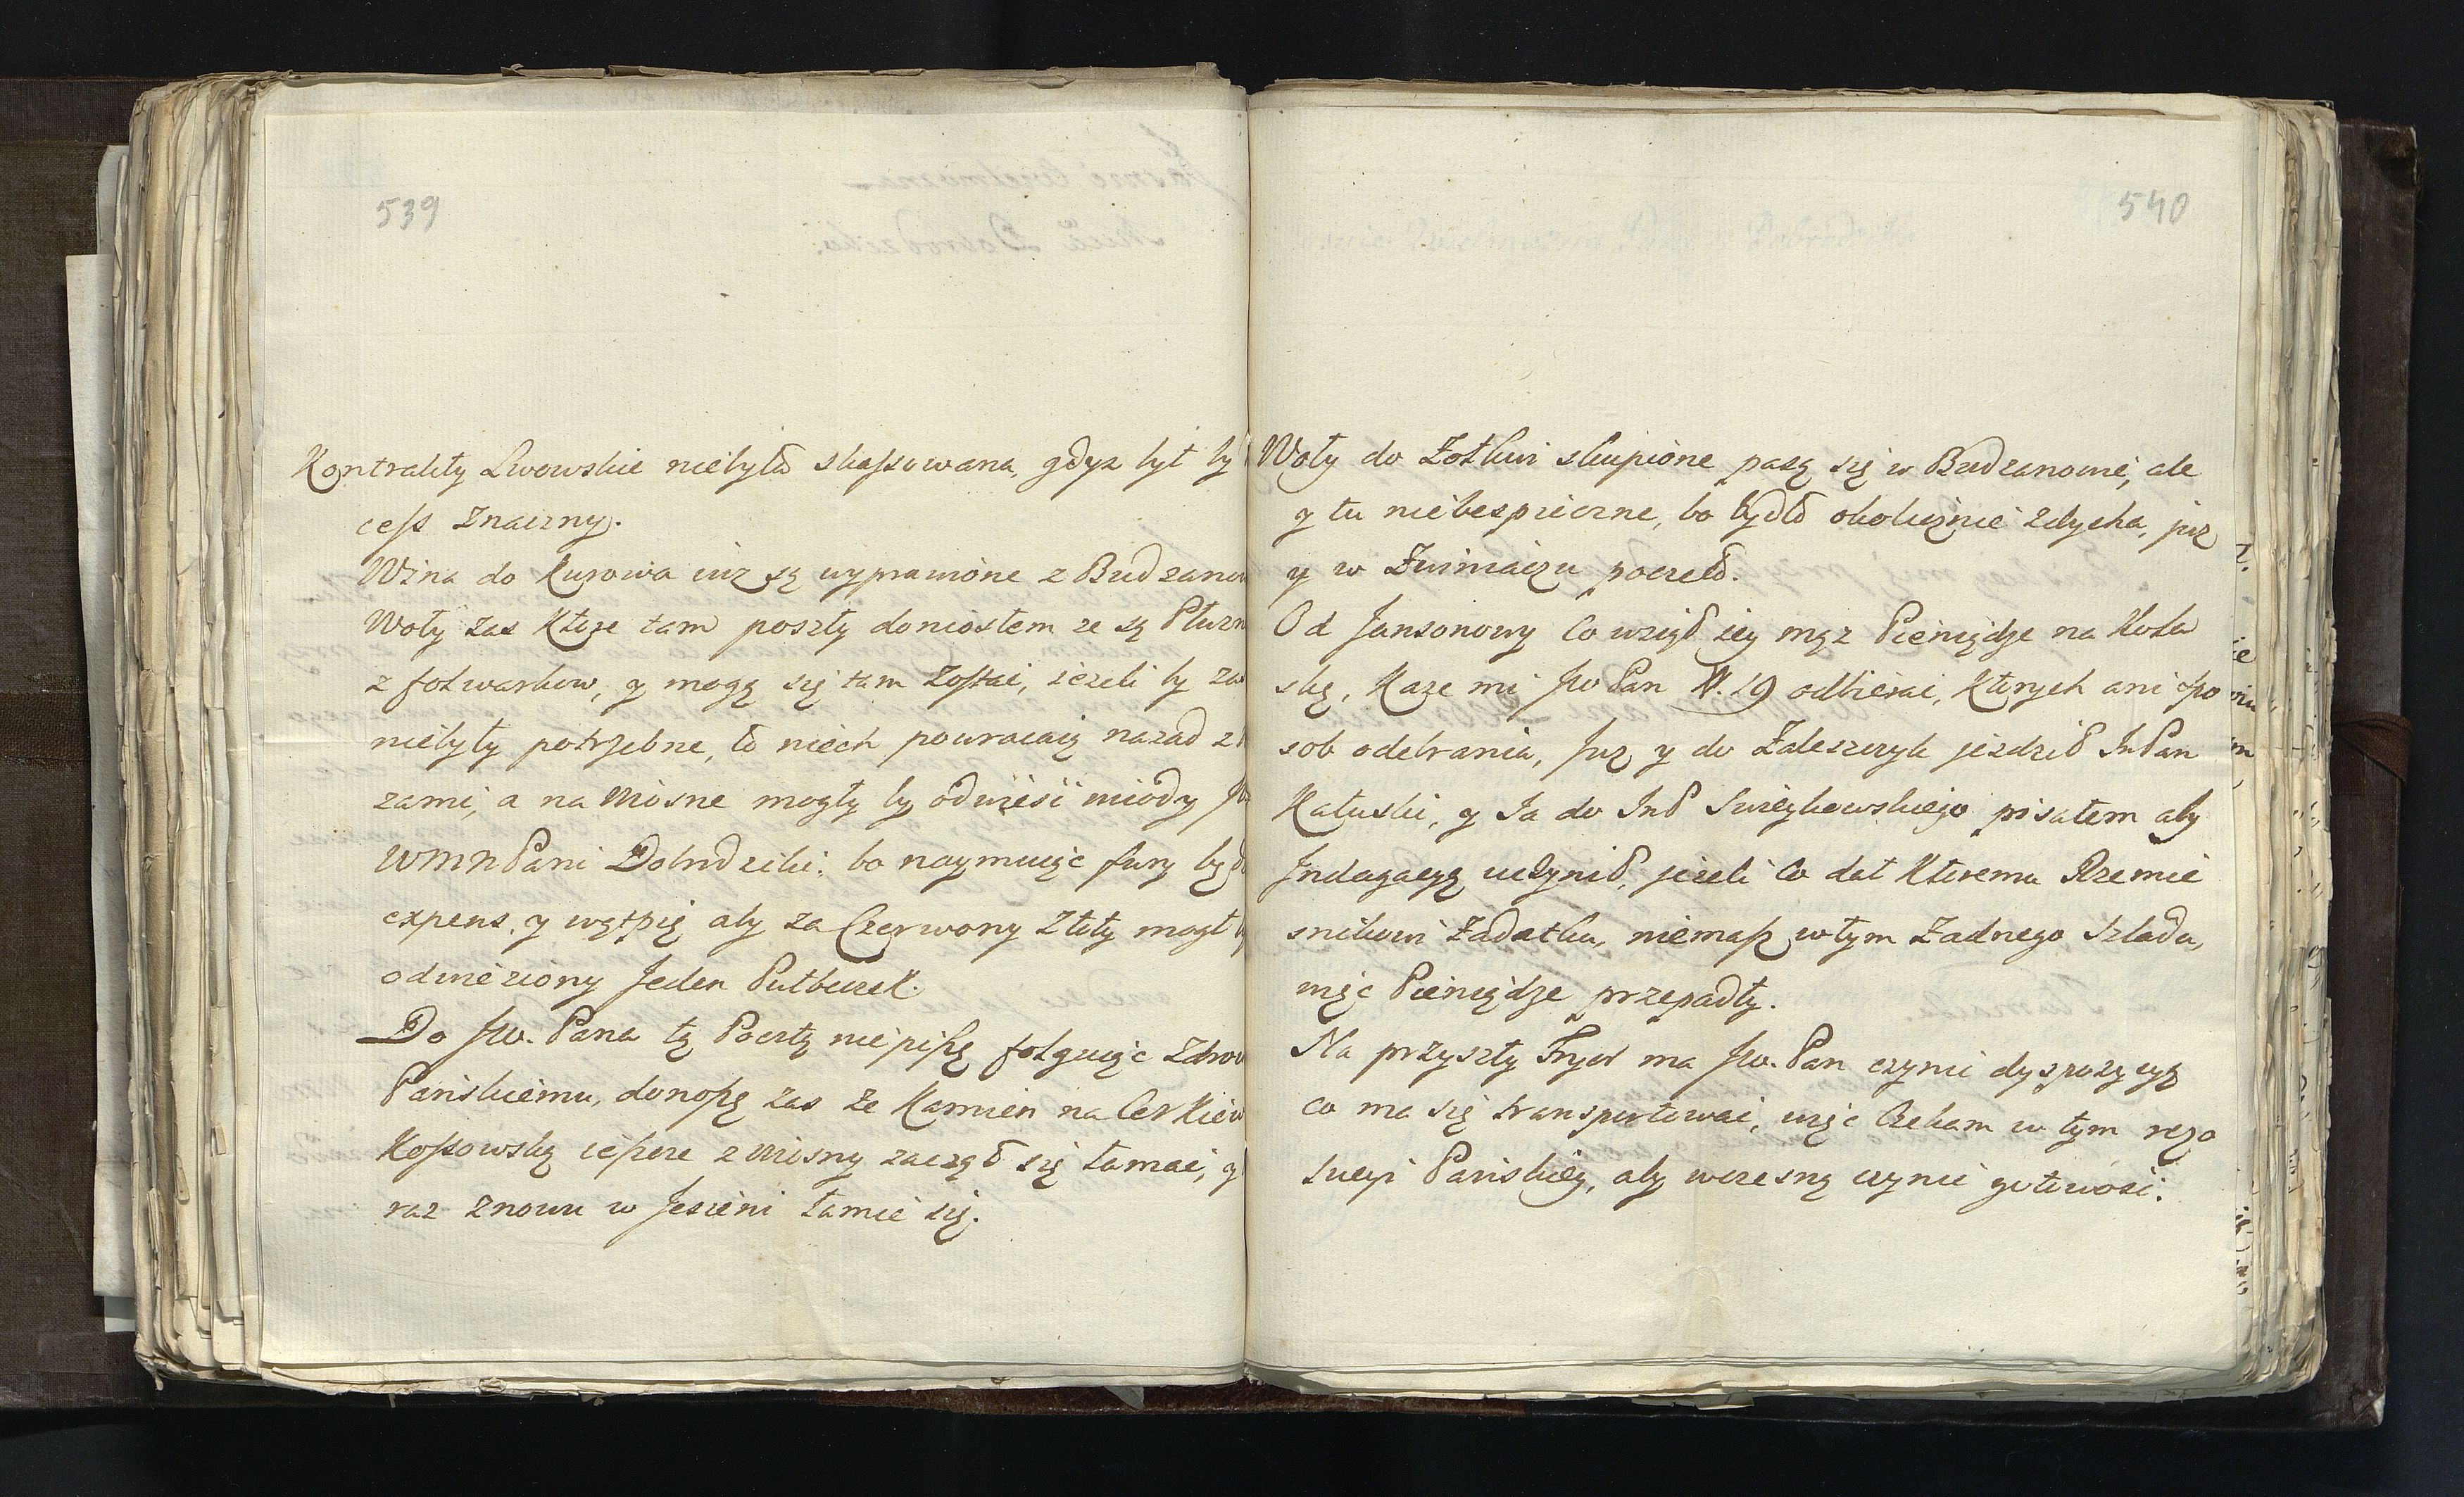 539
Kontrakty Lwowskie niebyła skassowana, gdyz był by
cess Znaczny.
Wina do Kurowa iuz są wyprawione z Budzanow
Woły zas Ktore tam poszły doniosłem ze są Płuzn
z folwarkow, y mogą się tam Zostac, iezeli by zas
niebyły potrzebne, to niech powracaią nazad z
zami, a na Wiosne mogły by odwiesc miody Jw
WMM Pani Dobrodziki: bo naymuiąc fury będ
expens. y wątpię aby za Czerwony Złoty mogł b
odwieziony Jeden Putbeczek.
Do Jw. Pana tą Pocztą niepiszę folguiąc Zdrow
Panskiemu, donoszę zas ze Kamien na Cerkiew
Kossowską ieszcze z Wiosny zaczął się łamac, y
raz znowu w Jesieni łamie się.
540
Woły do Zołkwi skupione pasą się w Budzanowie, ale
y tu niebespieczne, bo bydło okolicznie zdycha, juz
y w Zwiniaczu poczeło.
Od Jansonowy Co wziął iey mąz Pieniądze na Kola
skę, Kaze mi Jw Pan #. 19 odbierac, Ktorych ani spo
sob odebrania, Juz y do Zaleszczyk jezdził ImPan
Kałuski, y Ja do ImP Swieykowskiego pisałem aby
Jndagacyą uczynił, jezeli Co dał Ktoremu Rzemie
snikowi Zadatku, niemasz wtym Zadnego Szladu,
więc Pieniądze przepadły.
Na przyszły Fryor ma Jw. Pan czynic dyspozycyą
co ma się transportowac, więc Czekam w tym rezo
lucyi Panskiey, aby wczesną czynic gotowosc.